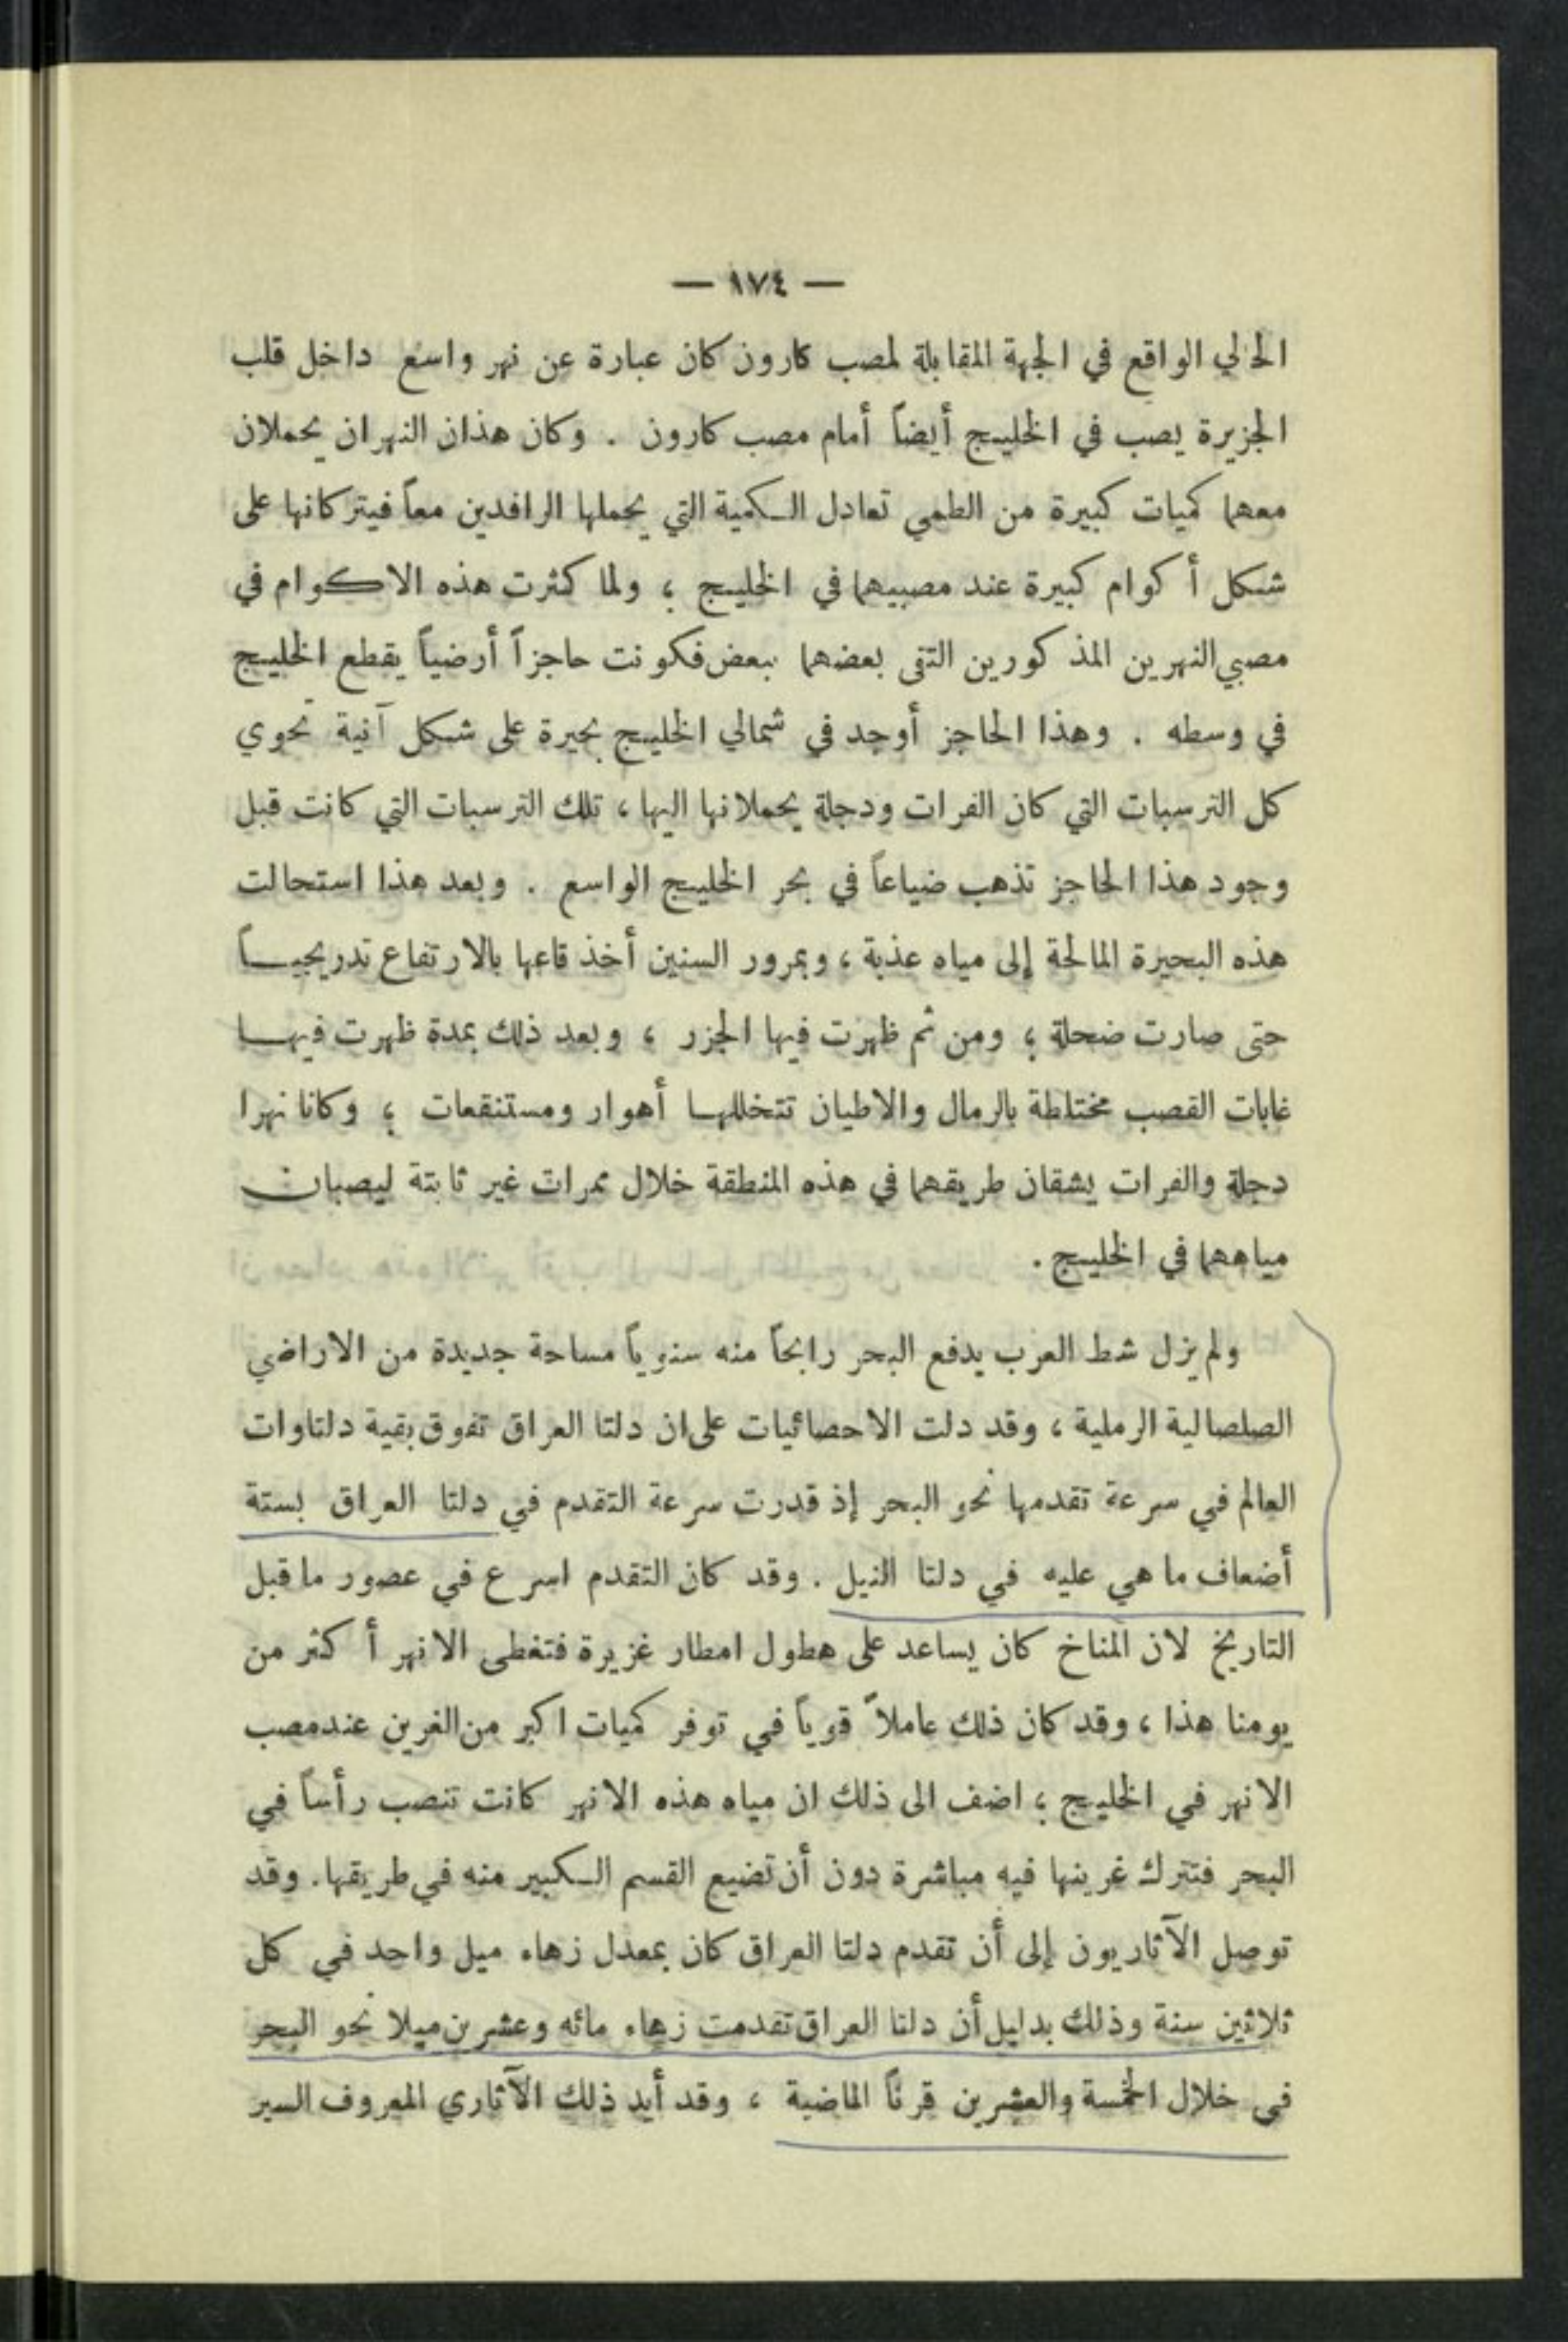 — ١٧٤ —
الحالي الواقع في الجهة المقابلة لمصب كارون كان عبارة عن نهر واسع داخل قلب
الجزيرة يصب في الخليج أيضاً أمام مصب كارون . وكان هذان النهران يحملان
معهما كميات كبيرة من الطمي تعادل الكمية التي يحملها الرافدين معاً فيتركانها على
شكل أكوام كبيرة عند مصبيهما في الخليج ؛ ولما كثرت هذه الاكوام في
مصبي النهرين المذكورين التقى بعضهما ببعض فكونت حاجزاً أرضياً يقطع الخليج
في وسطه . وهذا الحاجز أوجد في شمالي الخليج بحيرة على شكل آنية تحوي
كل الترسبات التي كان الفرات ودجلة يحملانها اليها ، تلك الترسبات التي كانت قبل
وجود هذا الحاجز تذهب ضياعاً في بحر الخليج الواسع . وبعد هذا استحالت
هذه البحيرة المالحة إلى مياه عذبة ، وبمرور السنين أخذ قاعها بالارتفاع تدريجيـاً
حتى صارت ضحلة ؛ ومن ثم ظهرت فيها الجزر ، وبعد ذلك بمدة ظهرت فيهـا
غابات القصب مختلطة بالرمال والاطيان تتخللهـا أهوار ومستنقعات ؛ وكانا نهرا
دجلة والفرات يشقان طريقهما في هذه المنطقة خلال ممرات غير ثابتة ليصبان
مياههما في الخليج .
ولم يزل شط العرب يدفع البحر رابحاً منه سنوياً مساحة جديدة من الاراضي
الصلصالية الرملية ، وقد دلت الاحصائيات على ان دلتا العراق تفوق بقية دلتاوات
العالم في سرعة تقدمها نحو البحر إذ قدرت سرعة التقدم في دلتا العراق بستة
أضعاف ما هي عليه في دلتا النيل . وقد كان التقدم اسرع في عصور ما قبل
التاريخ لان المناخ كان يساعد على هطول امطار غزيرة فتغطى الانهر أكثر من
يومنا هذا ، وقد كان ذلك عاملاً قوياً في توفر كميات اكبر من الغرين عند مصب
الانهر في الخليج ؛ اضف الى ذلك ان مياه هذه الانهر كانت تنصب رأساً في
البحر فتترك غرينها فيه مباشرة دون أن تضيع القسم الكبير منه في طريقها. وقد
توصل الآثاريون إلى أن تقدم دلتا العراق كان بمعدل زهاء ميل واحد في كل
ثلاثين سنة وذلك بدليل أن دلتا العراق تقدمت زهاء مائه وعشرين ميلا نحو البحر
في خلال الخمسة والعشرين قرناً الماضية ، وقد أيد ذلك الآثاري المعروف السير